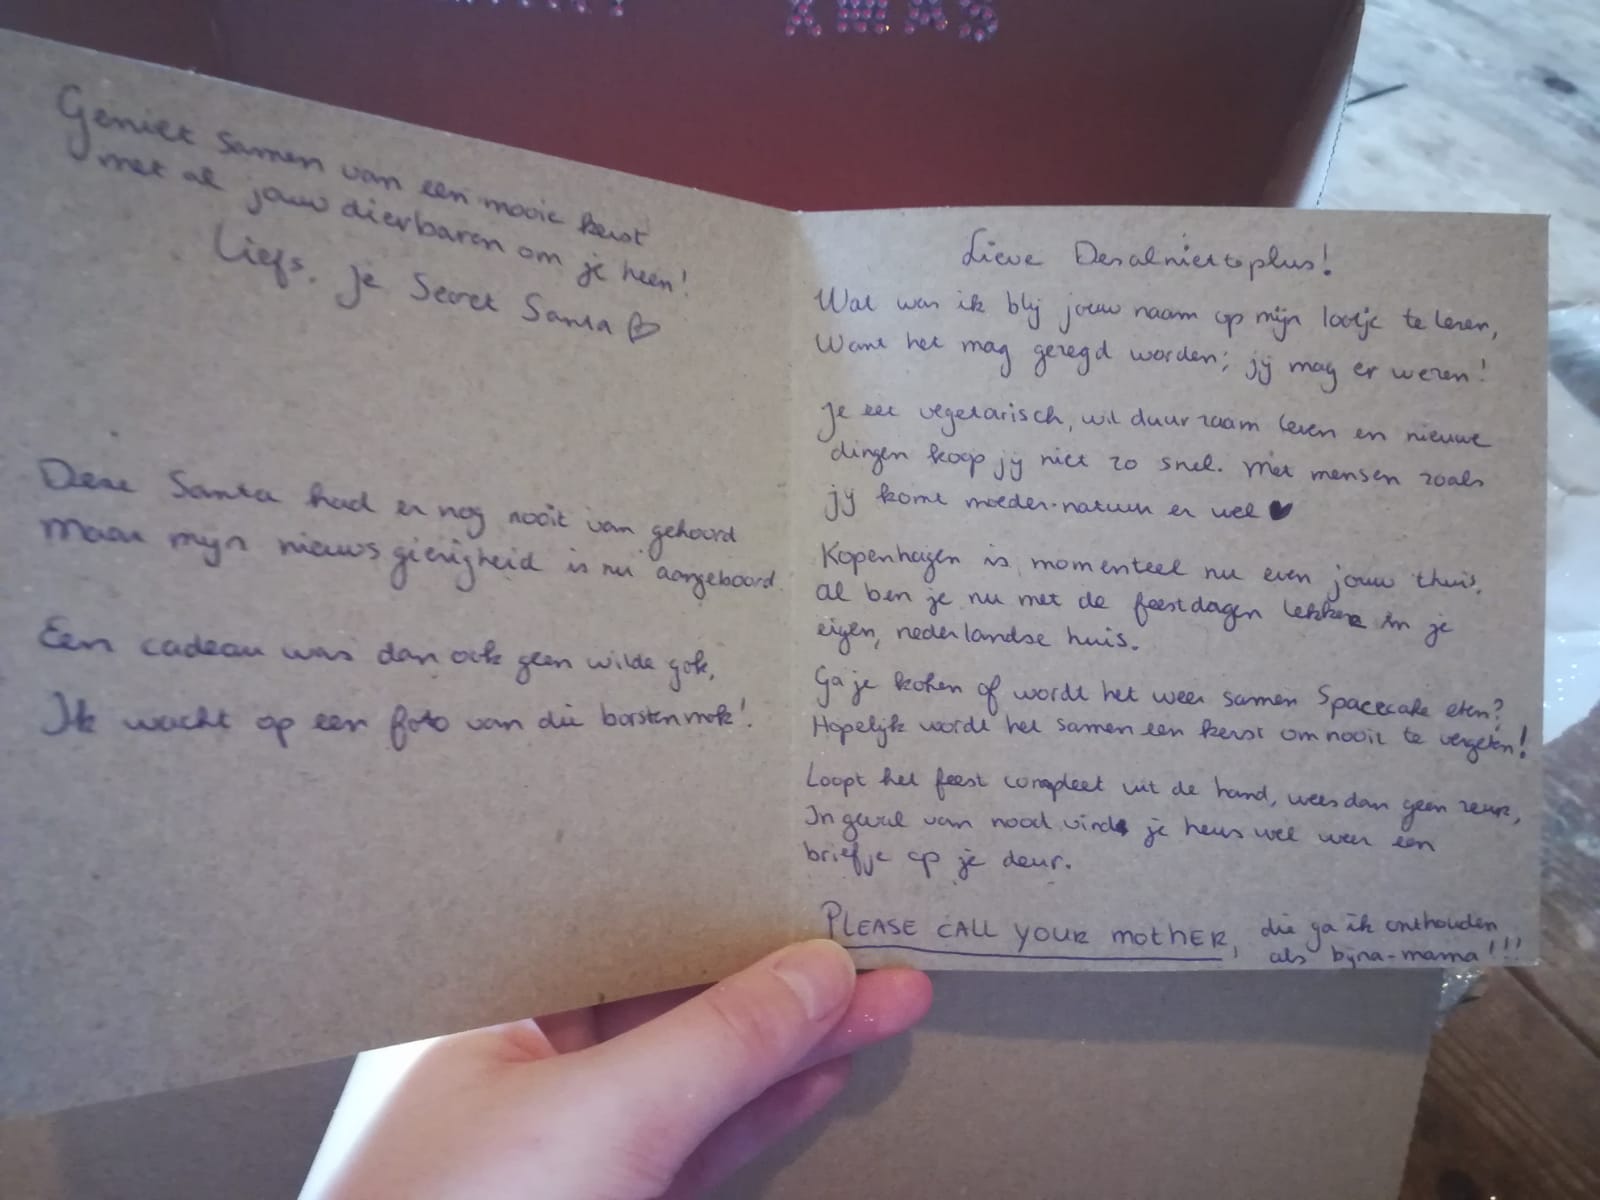 XMAS
Geniet samen van een mooie kerst
met al jouw dierbaren om je heen!
Liefs, je Secret Santa
Deze Santa had er nog nooit van gehoord
Maar mijn nieuwsgierigheid is nu aangeboord.
Een cadeau was dan ook geen wilde gok,
Ik wacht op een foto van die borstenmok!
Lieve Desalnietteplus!
Wat was ik blij jouw naam op mijn lootje te lezen,
Want het mag gezegd worden; jij mag er wezen!
Je eet vegetarisch, wil duurzaam leven en nieuwe
dingen koop jij niet zo snel. Met mensen zoals
jij komt moeder-natuur er wel ♥
Kopenhagen is momenteel nu even jouw thuis,
al ben je nu met de feestdagen lekker in je
eigen, nederlandse huis.
Ga je koken of wordt het weer samen Spacecake eten?
Hopelijk wordt het samen een kerst om nooit te vergeten!
Loopt het feest compleet uit de hand, wees dan geen zeur,
In geval van nood vind je heus wel weer een
briefje op je deur.
PLEASE CALL YOUR MOTHER, die ga ik onthouden
als bijna-mama!!!